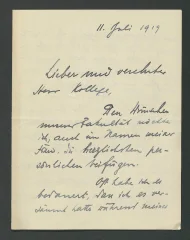 11. Juli 1919
Lieber und verehrter
Herr Kollege,
Den Wünschen
unserer Fakultät möchte
ich, auch im Namen meiner
Frau, die herzlichsten per-
sönlichen beifügen.
Oft habe ich es
bedauert, dass ich es ver-
säumt hatte während meines